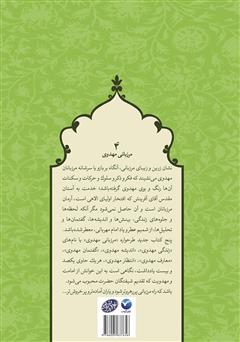 ۴
مرزبانی مهدوی
نشان زرین و زیبای مرزبانی، آنگاه بر بازو یا سرشانه مرزبانان
مهدوی می‌نشیند که فکر و ذکر و سلوک و حرکات و سکنات
آن‌ها رنگ و بوی مهدوی گرفته باشد؛ خدمت به آستان
مقدس آقای آفرینش که افتخار اولیای الاهی است، آرمان
مرزبانان است و آن حاصل نمی‌شود مگر آنکه لحظه‌ها
و جلوه‌های زندگی، بینش‌ها و اندیشه‌ها، گفتمان‌ها و
تحلیل‌ها، از شمیم عطر و یاد امام مهربانی، معطر شده باشد.
پنج کتاب جدید طرحواره «مرزبانی مهدوی» با نام‌های
«زندگی مهدوی»، «اندیشه مهدوی»، «گفتمان مهدوی»،
«معارف مهدوی»، «انتظار مهدوی»، هریک حاوی یکصد
و بیست یادداشت، نگاهی است به این خوانش از امامت
و مهدویت که تقدیم شیفتگان حضرت محبوب می‌شود.
باشد که راه مرزبانی پررهروتر شود و یاران آماده‌تر و پرخروش‌تر...